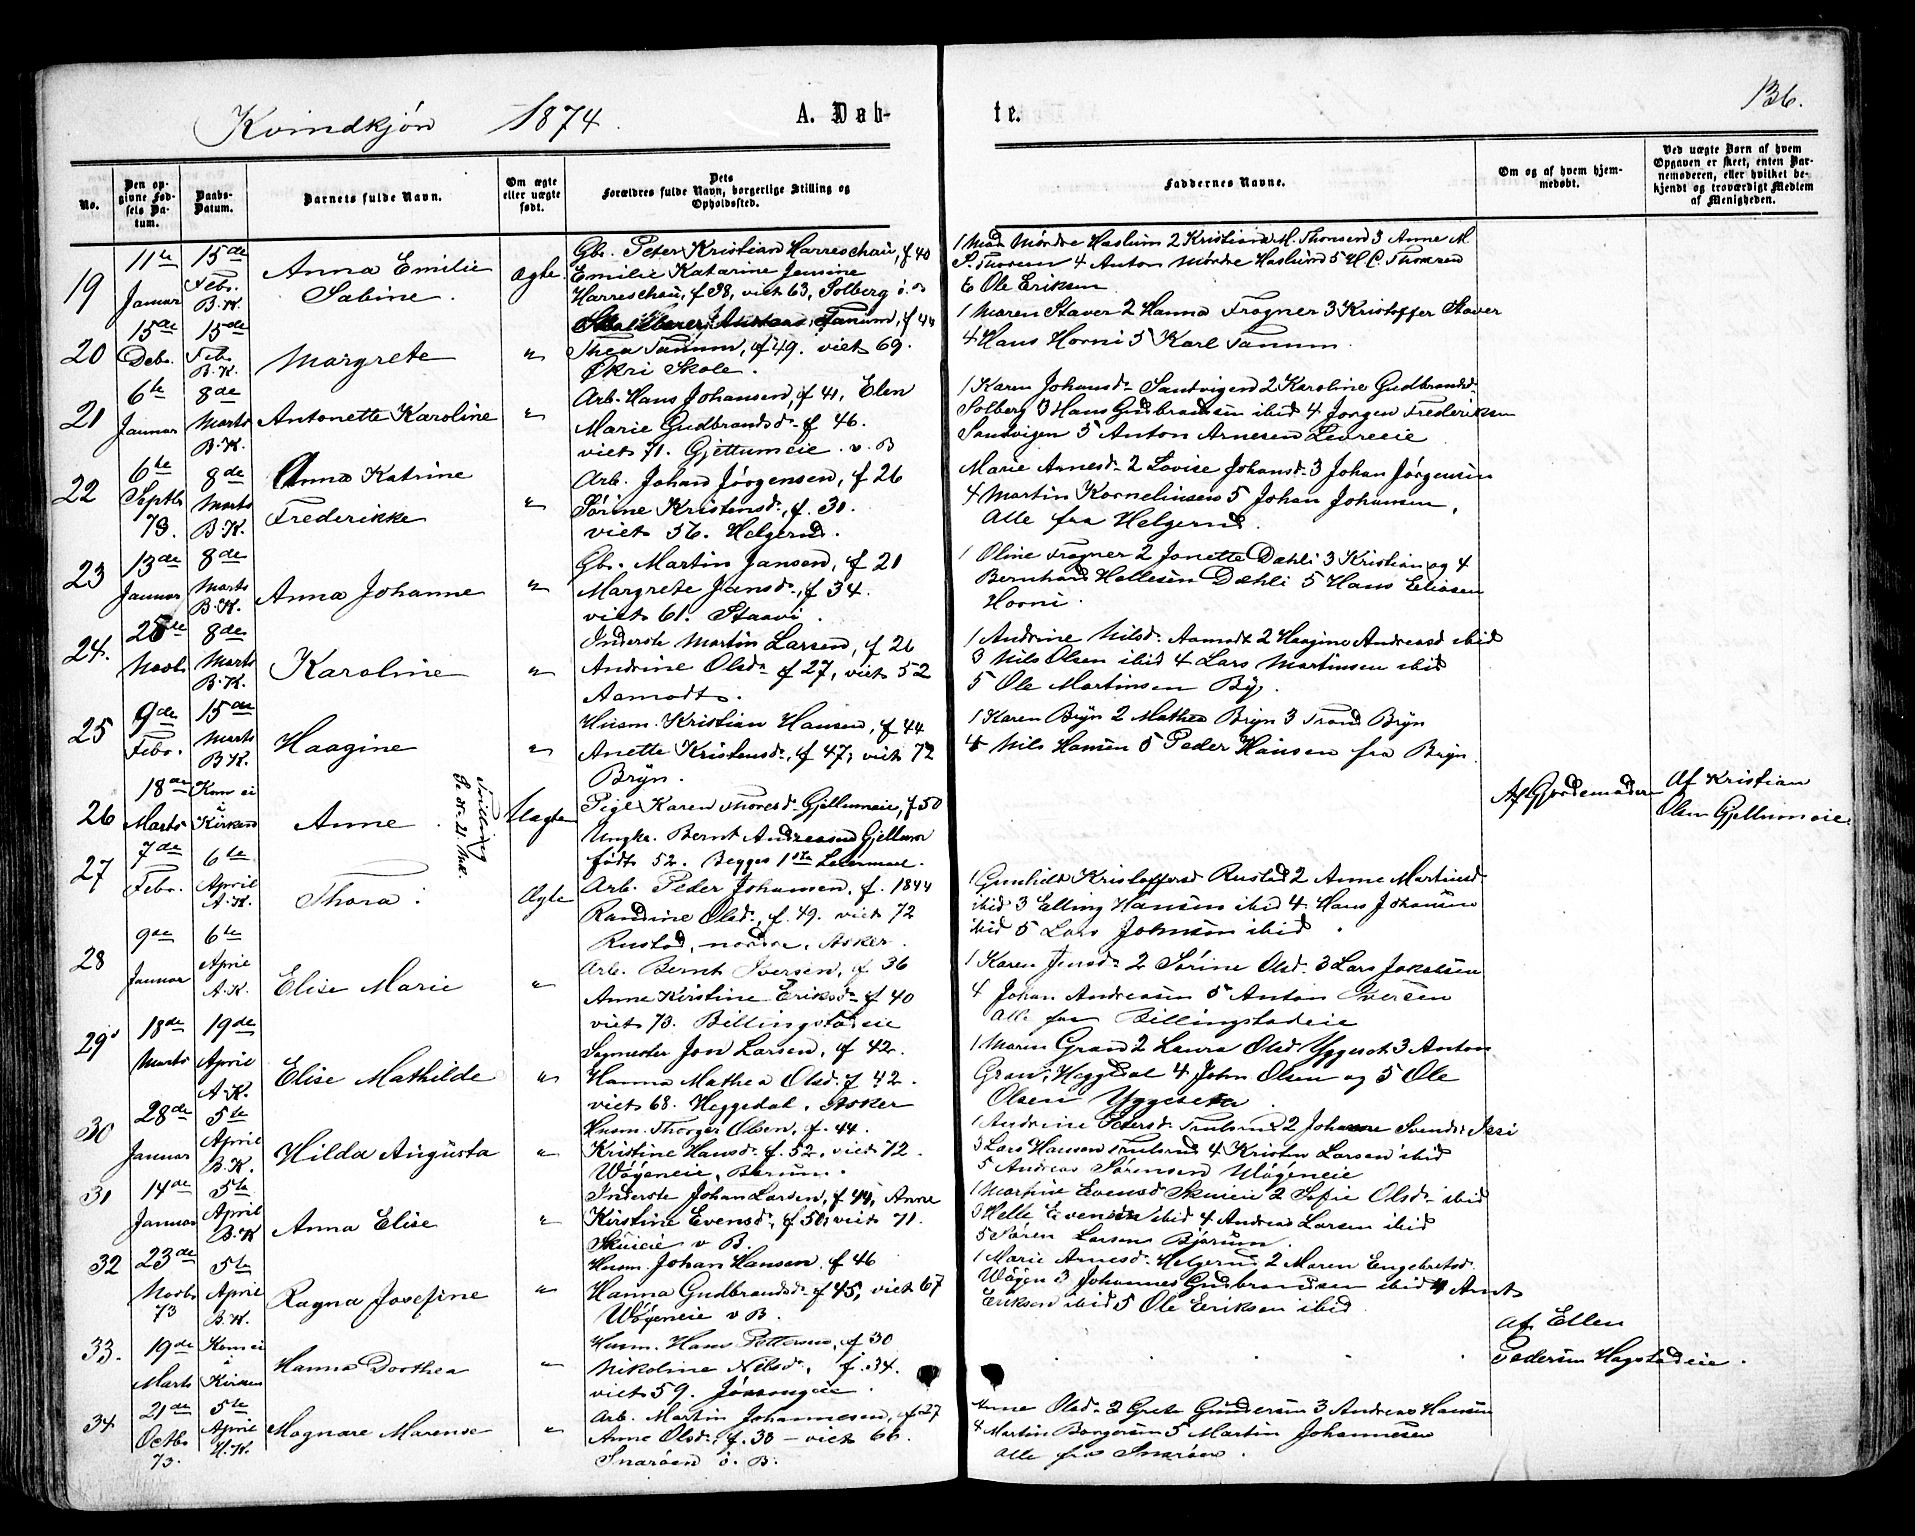 Kvindkjøn 1874. A. Døb-
te. 136.
No.
Den op-
givne Fød-
sels Da-
tum.
Daabs-
Datum.
Barnets fulde Navn.
Om ægte
eller uægte
født.
Dets
Forældres fulde Navn, borgerlige Stilling og
Opholdssted.
Faddernes Navne.
Om og af hvem hjem-
medøbt.
Ved uægte Børn af hvem
Opgaven er skeet, enten Bar-
nemoderen, eller hvilket be-
kjendt og troværdigt Medlem
af Menigheden.
19
11te
Januar
15de
Febr.
B.K.
Anna Emilie
Sabine.
Ægte
Gbr. Peter Kristian Harreschau, f 40
Emilie Katarine Jensine
Harreschau, f 38, viet 63, Solberg ø. B
1 Mad. Mørdre Haslum 2 Kristiane M. Thonsen 3 Anne M.
S. Thoresen 4 Anton Mørdre Haslum 5 H. C. Thomsen
6 Ole Eriksen
20
15de
Debr.
15de
Feb
B.K.
Margrete
"
Tanum, f 44
Thea Tanum, f 49. viet 69.
Økri Skole.
1 Maren Staver 2 Hanna Frogner 3 Kristoffer Staver
4 Hans Horni 5 Karl Tanum
21
6te
Januar
8de
Marts
B.K.
Antonette Karoline
"
Arb. Hans Johansen, f 41, Elen
Marie Gudbrandsd. f 46.
viet 71. Gjettumeie v. B
1 Karen Johansd. Sandvigen 2 Karoline Gudbrandsd.
Solberg 3 Hans Gudbrandsen ibid 4 Jørgen Frederiksen
Sandvigen 5 Anton Arnesen Levreeie
22
6te
Septbr
73.
8de
Marts
B.K.
Anna Katrine
Frederikke
"
Arb. Johan Jørgensen, f 26
Sørine Kristensd., f. 30.
viet 56. Helgerud.
Marie Arnesd. 2 Lovise Johansd. 3 Johan Jørgensen
4 Martin Kornelinsen 5 Johan Johansen,
Alle fra Helgerud.
23
13de
Januar
8de
Marts
B.K.
Anna Johanne
"
Gbr. Martin Jansen, f 21
Margrete Jansd., f 34.
viet 61. Staavi.
1 Oline Frogner 2 Janette Dæhli 3 Kristian og 4
Bernhard Hellesen Dæhli 5 Hans Eliasen
Horni.
24.
28de
Novbr
8de
Marts
B.K.
Karoline
"
Inderste Martin Larsen, f 26
Andrine Olsd. f 27, viet 52
Aamodt.
1 Andrine Nilsd. Aamodt 2 Haagine Andreasd ibid
3 Nils Olsen ibid 4 Lars Martinsen ibid
5 Ole Martinsen By.
25
9de
Febr.
15de
Marts
B.K.
Haagine
"
Husm. Kristian Hansen, f 44
Anette Kristensd., f 47, viet 72
Bryn.
1 Karen Bryn 2 Mathea Bryn 3 Trond Bryn
4 Nils Hansen 5 Peder Hansen fra Bryn.
26
18de
Marts
Kom ei
i
Kirken
Anne.
Tvilling
Se No. 21. Mk.
Uægte
Pige Karen Thoresd. Gjettumeie, f 50
Ungk. Bernt Andreasen Gjettum
født 52. Begges 1ste Leiermaal.
Af Gjordemoderen
Af Kristian
Olsen Gjettumeie.
27
7de
Febr.
6te
April
A.K.
Thora.
Ægte
Arb. Peder Johansen, f. 1844
Randine Olsd., f. 49. viet 72
Rustad, nordre, Asker.
1 Gunhild Kristoffersd Rustad 2 Anne Martinsd.
ibid 3 Elling Hansen ibid 4 Hans Johansen
ibid 5 Lars Johnsen ibid.
28
9de
Januar
6te
April
A.K.
Elise Marie
"
Arb. Bernt Iversen, f 36
Anne Kirstine Eriksd. f 40
viet 73. Billingstadeie
1 Karen Jensd. 2 Sørine Olsd. 3 Lars Jakobsen
4 Johan Andreasen 5 Anton Iversen
Alle fra Billingstadeie
29
18de
Marts
19de
April
A.K.
Elise Mathilde
"
Sagmester Jon Larsen, f 42.
Hanna Mathea Olsd. f 42.
viet 68. Heggedal, Asker
1 Maren Gran 2 Laura Olsd Yggeset 3 Anton
Gran, Heggedal 4 John Olsen og 5 Ole
Olsen Yggeset.
30
28de
Januar
5te
April
B.K.
Hilda Augusta
"
Husm. Thorger Olsen, f. 44.
Kristine Hansd. f. 52, viet 72.
Wøyeneie, Bærum.
1 Andrine Pedersd. Trulsrud 2 Johanne Svendsd. Isi
3 Lars Hansen Trulsrud 4 Kristen Larsen ibid
5 Andreas Sørensen Wøyeneie
31
14de
Januar
5te
April
B.K
Anna Elise
"
Inderste Johan Larsen, f 44, Anne
Kirstine Evensd., f 50, viet 71.
Skuieie v B
1 Martine Evensd Skuieie 2 Sofie Olsd. ibid
3 Helle Evensen ibid 4 Andreas Larsen ibid
5 Søren Larsen Bjørum.
32
23de
Novbr
73
5te
April
B.K.
Ragna Josefine
"
Husm. Johan Hansen, f 46
Hanna Gudbrandsd. f 45, viet 67
Wøyeneie v B.
1 Marie Arnesd. Helgerud 2 Maren Engebretsd.
Wøyen 3 Johannes Gudbrandsen ibid 4 Arnt
Eriksen ibid 5 Ole Eriksen ibid.
33.
19de
Marts
Kom ei
i
Kirken
Hanna Dorthea
"
Husm. Hans Pettersen, f 30
Nikoline Nilsd., f. 34.
viet 59. Jønsrugeie.
Af Ellen
Pedersen Hagstadeie.
34
21de
Octbr
73.
5te
April
H.K.
Magnare Marense
"
Arb. Martin Johannesen, f 27
Anne Olsd., f. 38 - viet 66.
Snarøen ø. B.
Anne Olsd. 2 Grete Gundersen 3 Andreas Hansen
4 Martin Borgersen 5 Martin Johannesen
Alle fra Snarøen.